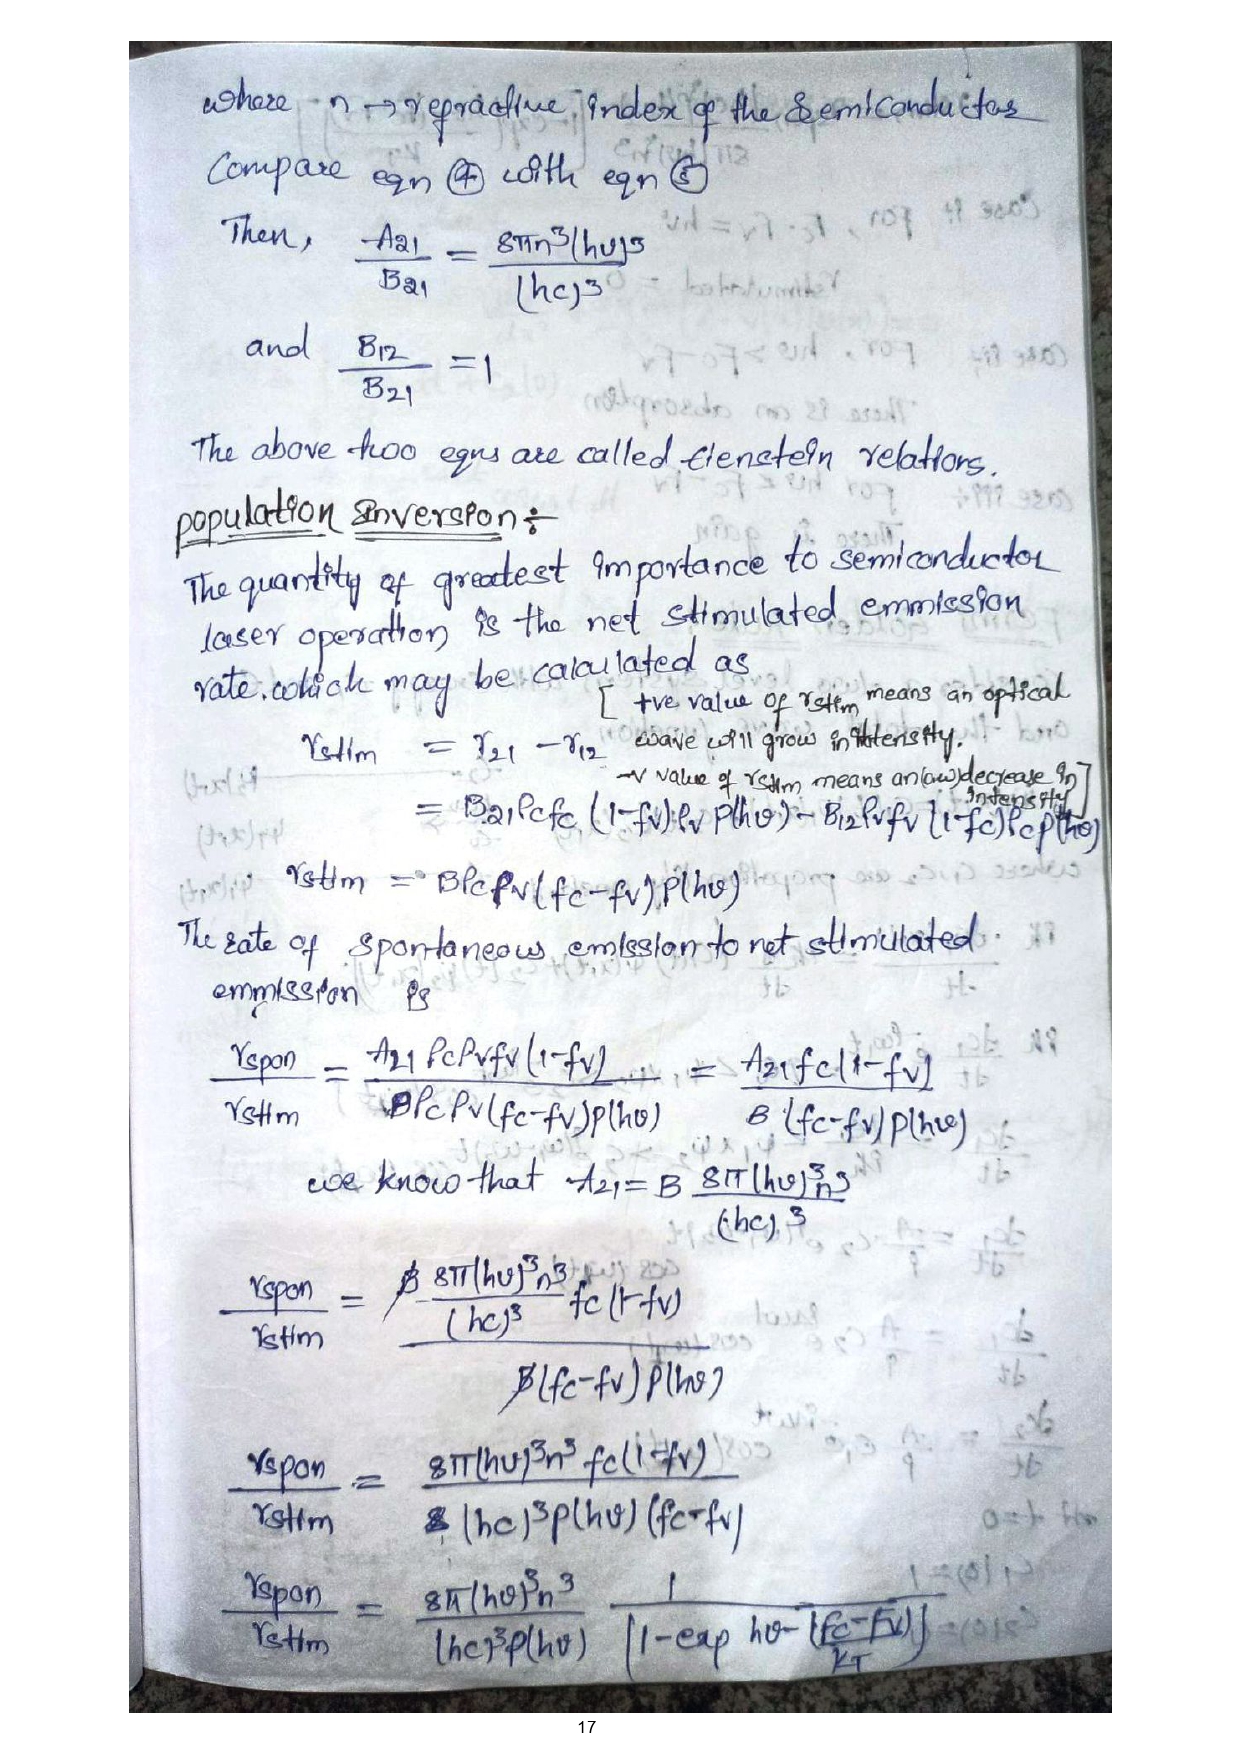 where n → refractive index of the Semiconductor
Compare eqn ④ with eqn ⑤
Then, A21/B21 = 8πn³(hυ)³/(hc)³
and B12/B21 = 1
The above two eqns are called Eienstein relations.
population Inversion ÷
The quantity of greatest importance to semiconductor
laser operation is the net stimulated emmission
rate. which may be calculated as
[ +ve value of rstim means an optical
rstim = r21 - r12 wave will grow in intensity.
-v value of rstim means an(ow)decrease in
intensity]
= B21 Pc fc (1-fv) Pv P(hυ) - B12 Pv fv (1-fc) Pc P(hυ)
rstim = B Pc Pv (fc-fv) P(hυ)
The rate of spontaneous emission to net stimulated
emmission is
rspon/rstim = A21 Pc Pv fv (1-fv)/B Pc Pv (fc-fv) P(hυ) = A21 fc (1-fv)/B (fc-fv) P(hυ)
we know that A21 = B 8π(hυ)³n³/(hc)³
rspon/rstim = B 8π(hυ)³n³/(hc)³ fc (1-fv)/B (fc-fv) P(hυ)
rspon/rstim = 8π(hυ)³n³ fc (1-fv)/(hc)³ P(hυ) (fc-fv)
rspon/rstim = 8π(hυ)³n³/(hc)³ P(hυ) 1/[1-exp hυ-(Fc-Fv)/KT]
17